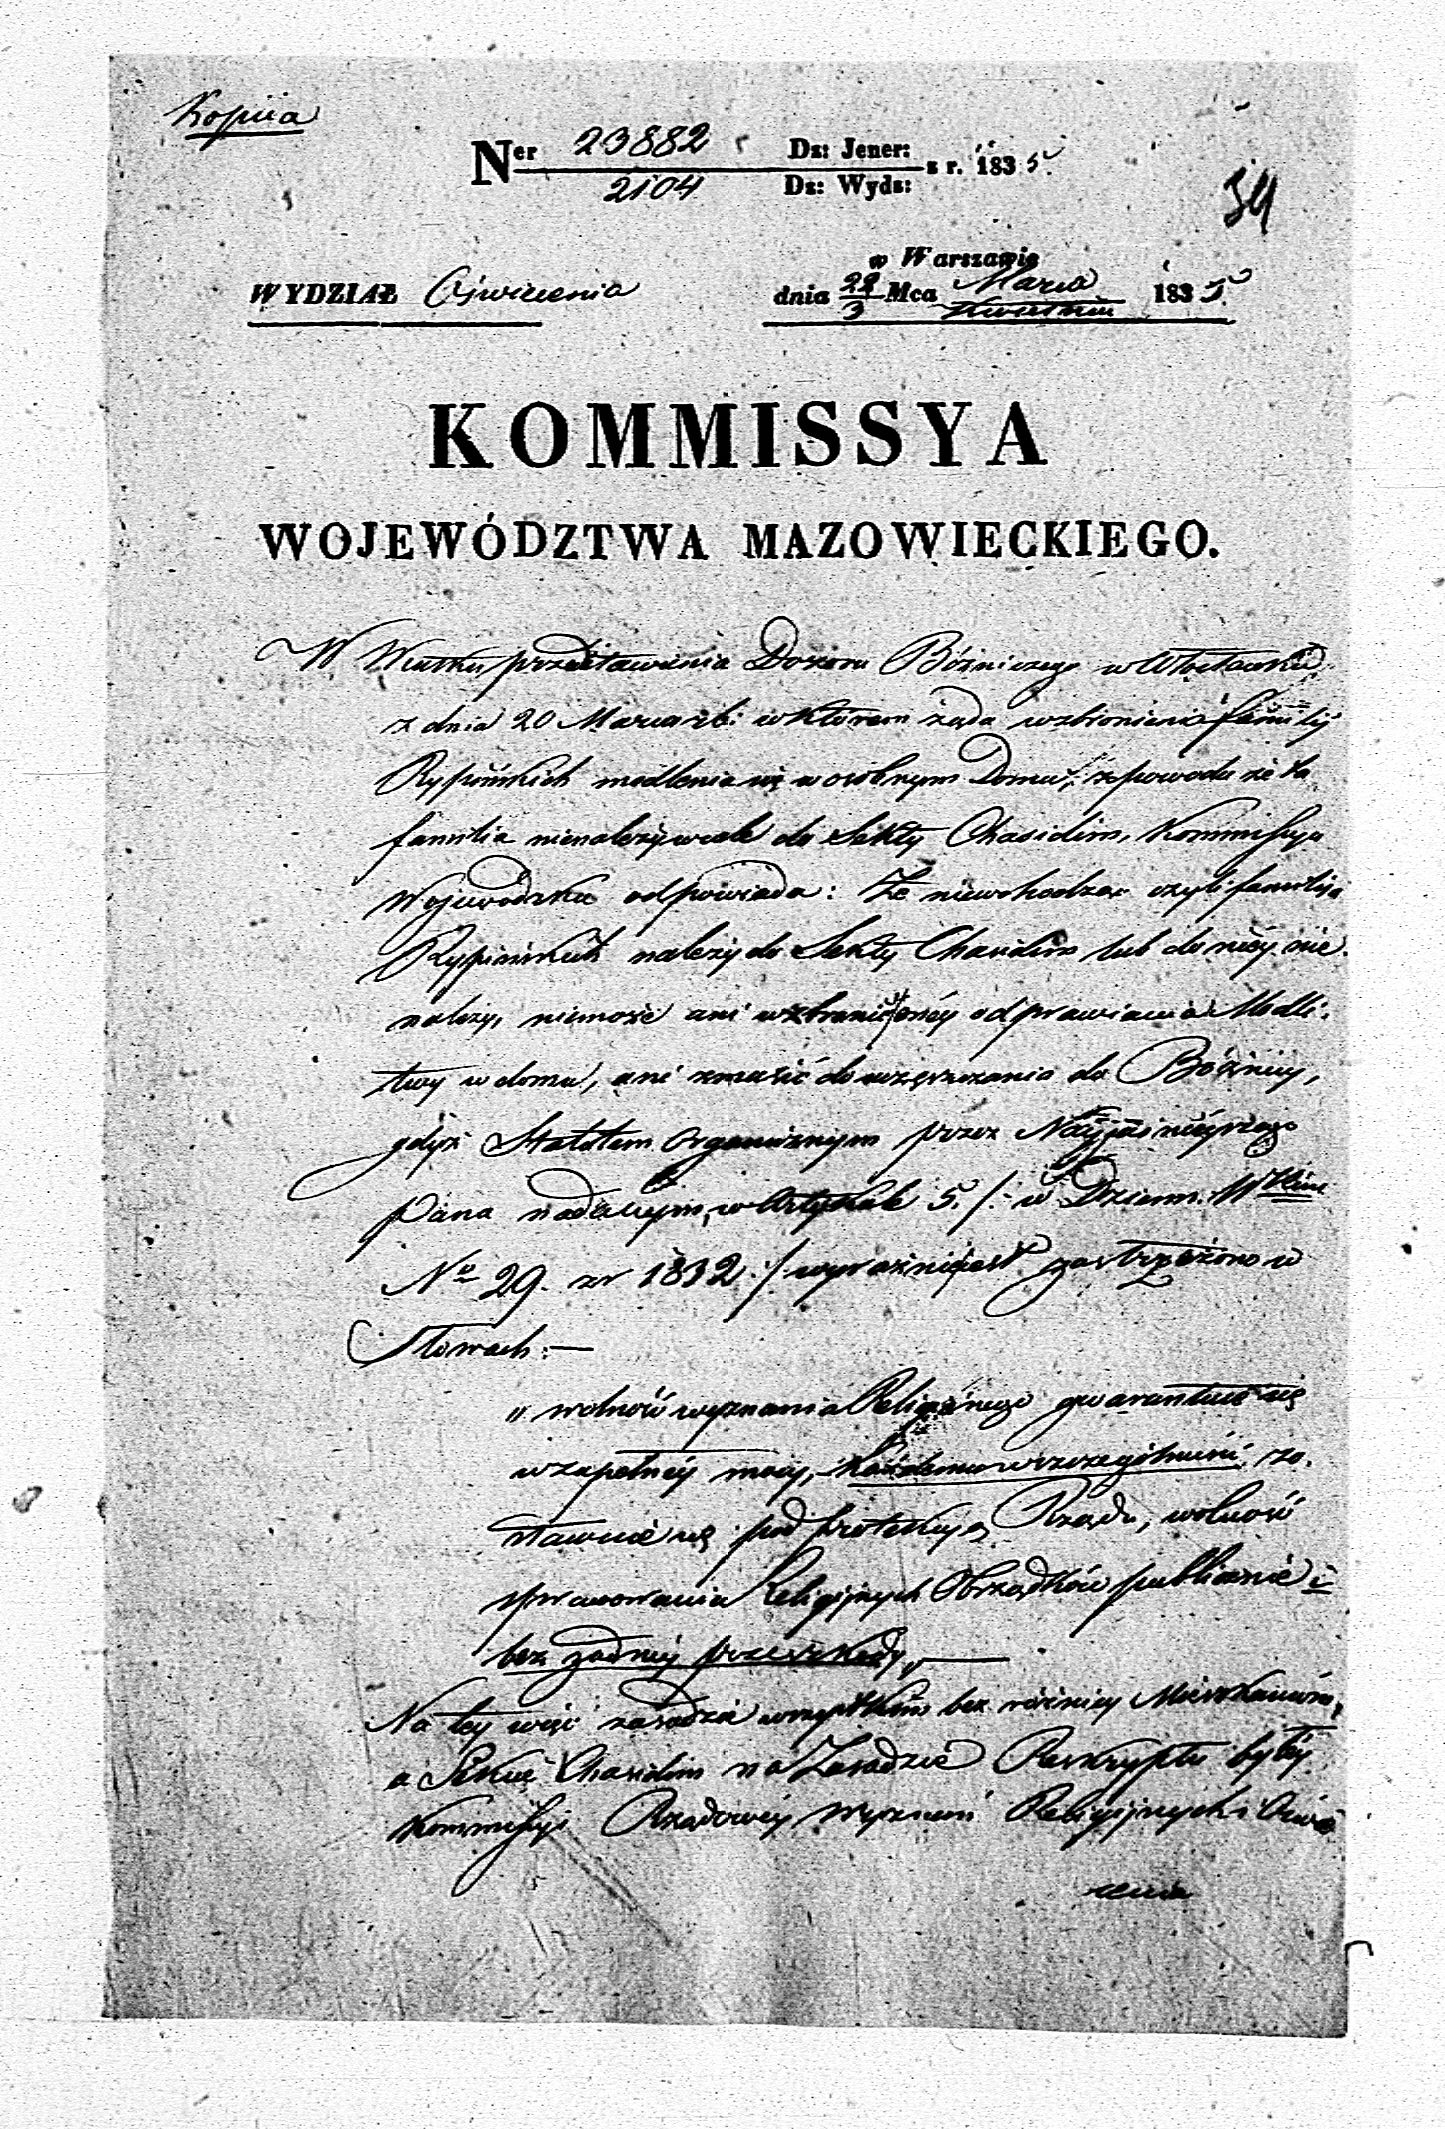 Kopiia
Ner 23882 Dz: Jener: z r. 1835.
2104 Dz: Wydz:
54
w Warszawie
WYDZIAŁ Oświecenia dnia 22/3 Mca Marca/Kwietnia 1835.
KOMMISSYA
WOJEWÓDZTWA MAZOWIECKIEGO.
W skutku przedstawienia Dozoru Bóżniczego w Włocławku
z dnia 20 Marca rb: w którem żąda wzbronienia familij
Rypińskich modlenia się w osobnym Domu, z powodu że ta
familia nienależy wcale do Sekty Chasidim, Kommissya
Wojewódzka odpowiada: Że niewchodząc czyli familija
Rypińskich należy do Sekty Chasidim lub do niéy nie
należy, niemoże ani wzbraniać onéy odprawiania Modli-
twy w domu, ani zmusić do uczęszczania do Bóżnicy,
gdyż Statutem Organicznym przez Nayjaśnieyszego
Pana nadanym, w Artykule 5. /: w Dzienn: Wkim
No 29. z r 1832 :/ wyraźnie jest zastrzeżono w
Słowach: —
„ wolność wyznania Religijnego gwarantuie się
w zupełnéy mocy, każdemu w szczególności zo-
stawuie się pod protekcyą Rządu, wolność
sprawowania Religijnych Obrządków publicznie i
bez żadnéy przeszkody „ —
Na tey więc zasadzie wszystkim bez różnicy Mieszkańcom,
a Sekcie Chasidim na Zasadzie Reskryptu byłéy
Kommissyi Rządowéy Wyznań Religijnych i Oświe
cenia